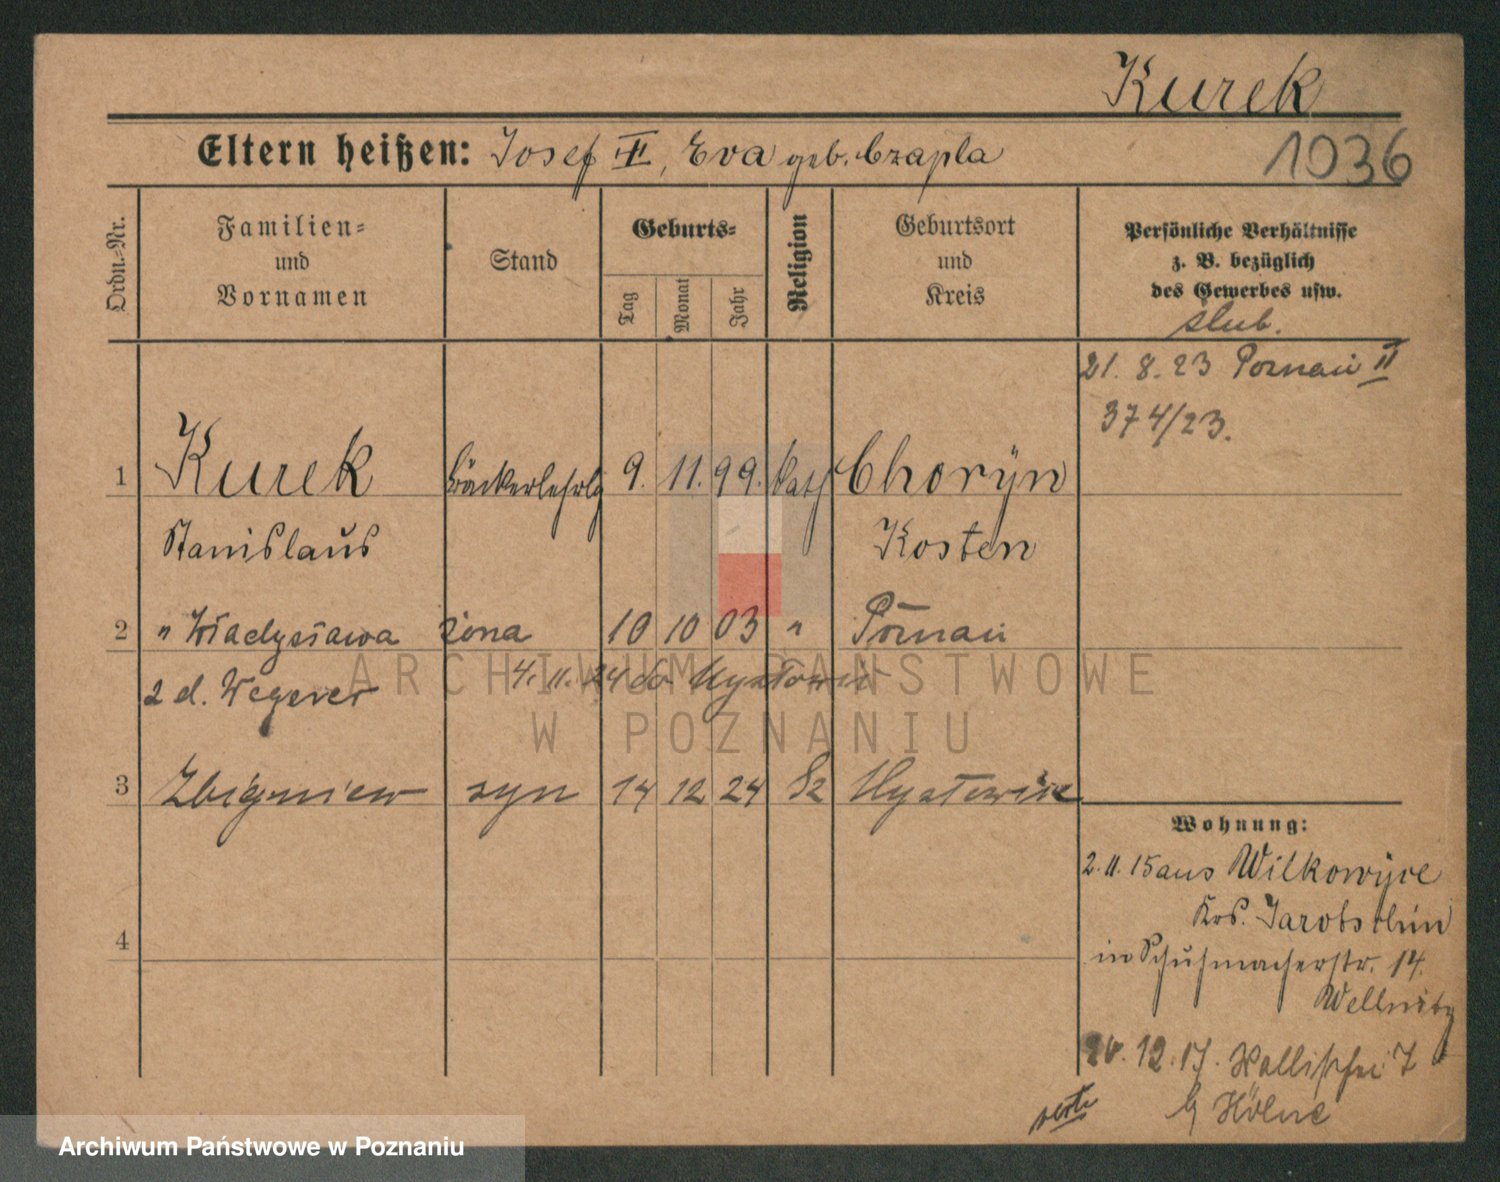 Kurek
Eltern heißen: Josef II, Eva geb. Czapla
1036
Ordn.-Nr.
Familien-
und
Vornamen
Stand
Geburts-
Tag
Monat
Jahr
Religion
Geburtsort
und
Kreis
Persönliche Verhältnisse
z. B. bezüglich
des Gewerbes usw.
ślub.
21. 8. 23 Poznań II
374/23.
1 Kurek Bäckerlehrlg 9. 11. 99. kath Choryn
Stanislaus Kosten
2 " Władysława żona 10 10 03 " Poznań
2 d. Wegener 4. 11. 24 do
3 Zbigniew syn 14 12 24
4
Wohnung:
2. 11. 15 aus Wilkowyce
Krs. Jarotschin
in Schuhmacherstr. 14.
20. 12. 17. Wallischei 7
b/
verte
ARCHIWUM PAŃSTWOWE
W POZNANIU
Archiwum Państwowe w Poznaniu